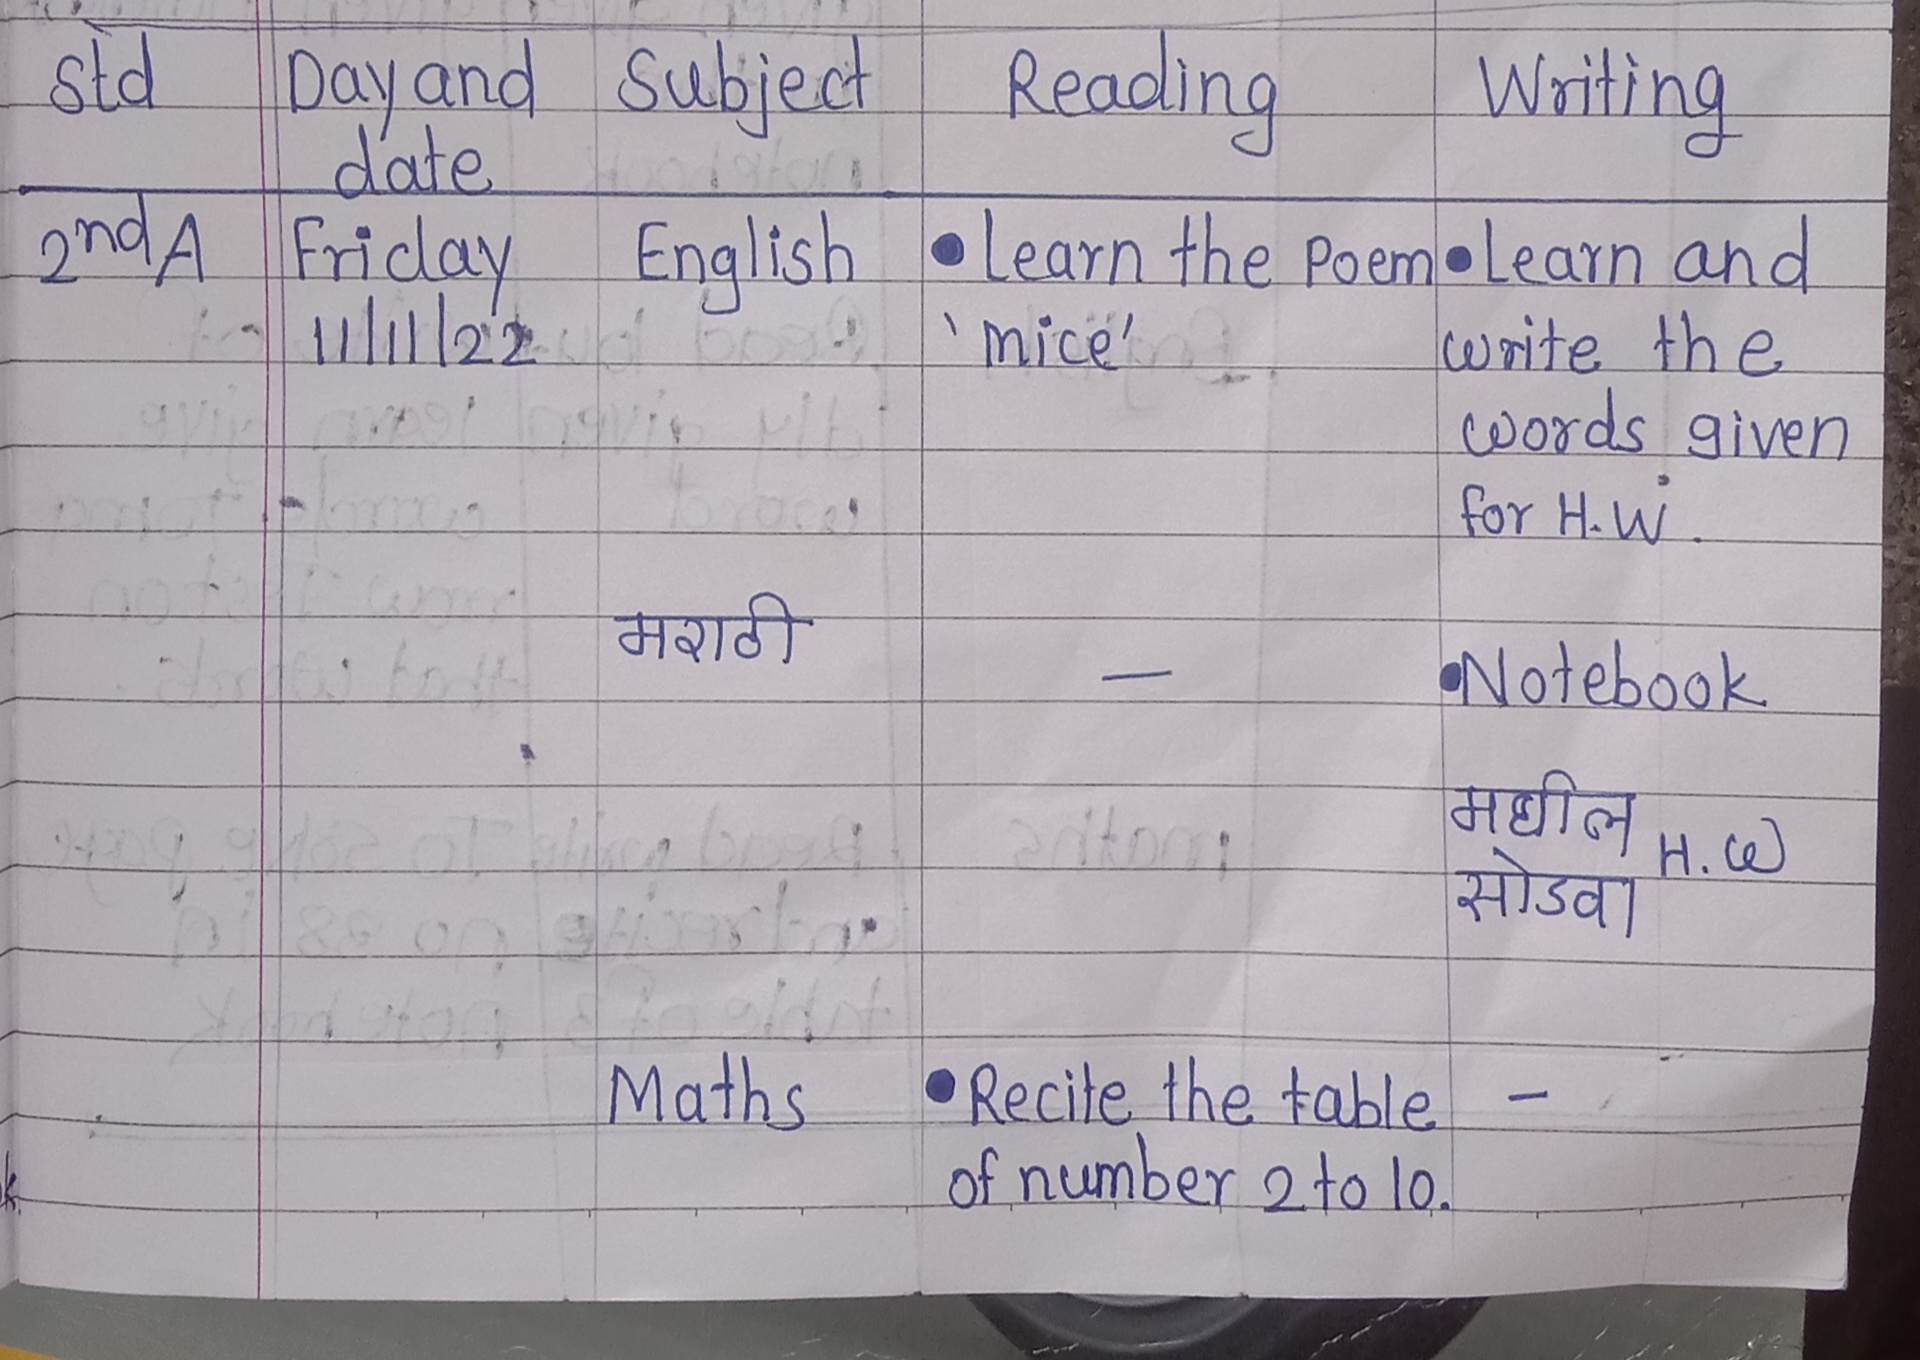 Std Day and Subject Reading Writing
date
2nd A Friday English • Learn the Poem • Learn and
11/11/22 'mice' write the
words given
for H.W.
मराठी
— • Notebook
मधील H.W
सोडवा
Maths • Recite the table —
of number 2 to 10.